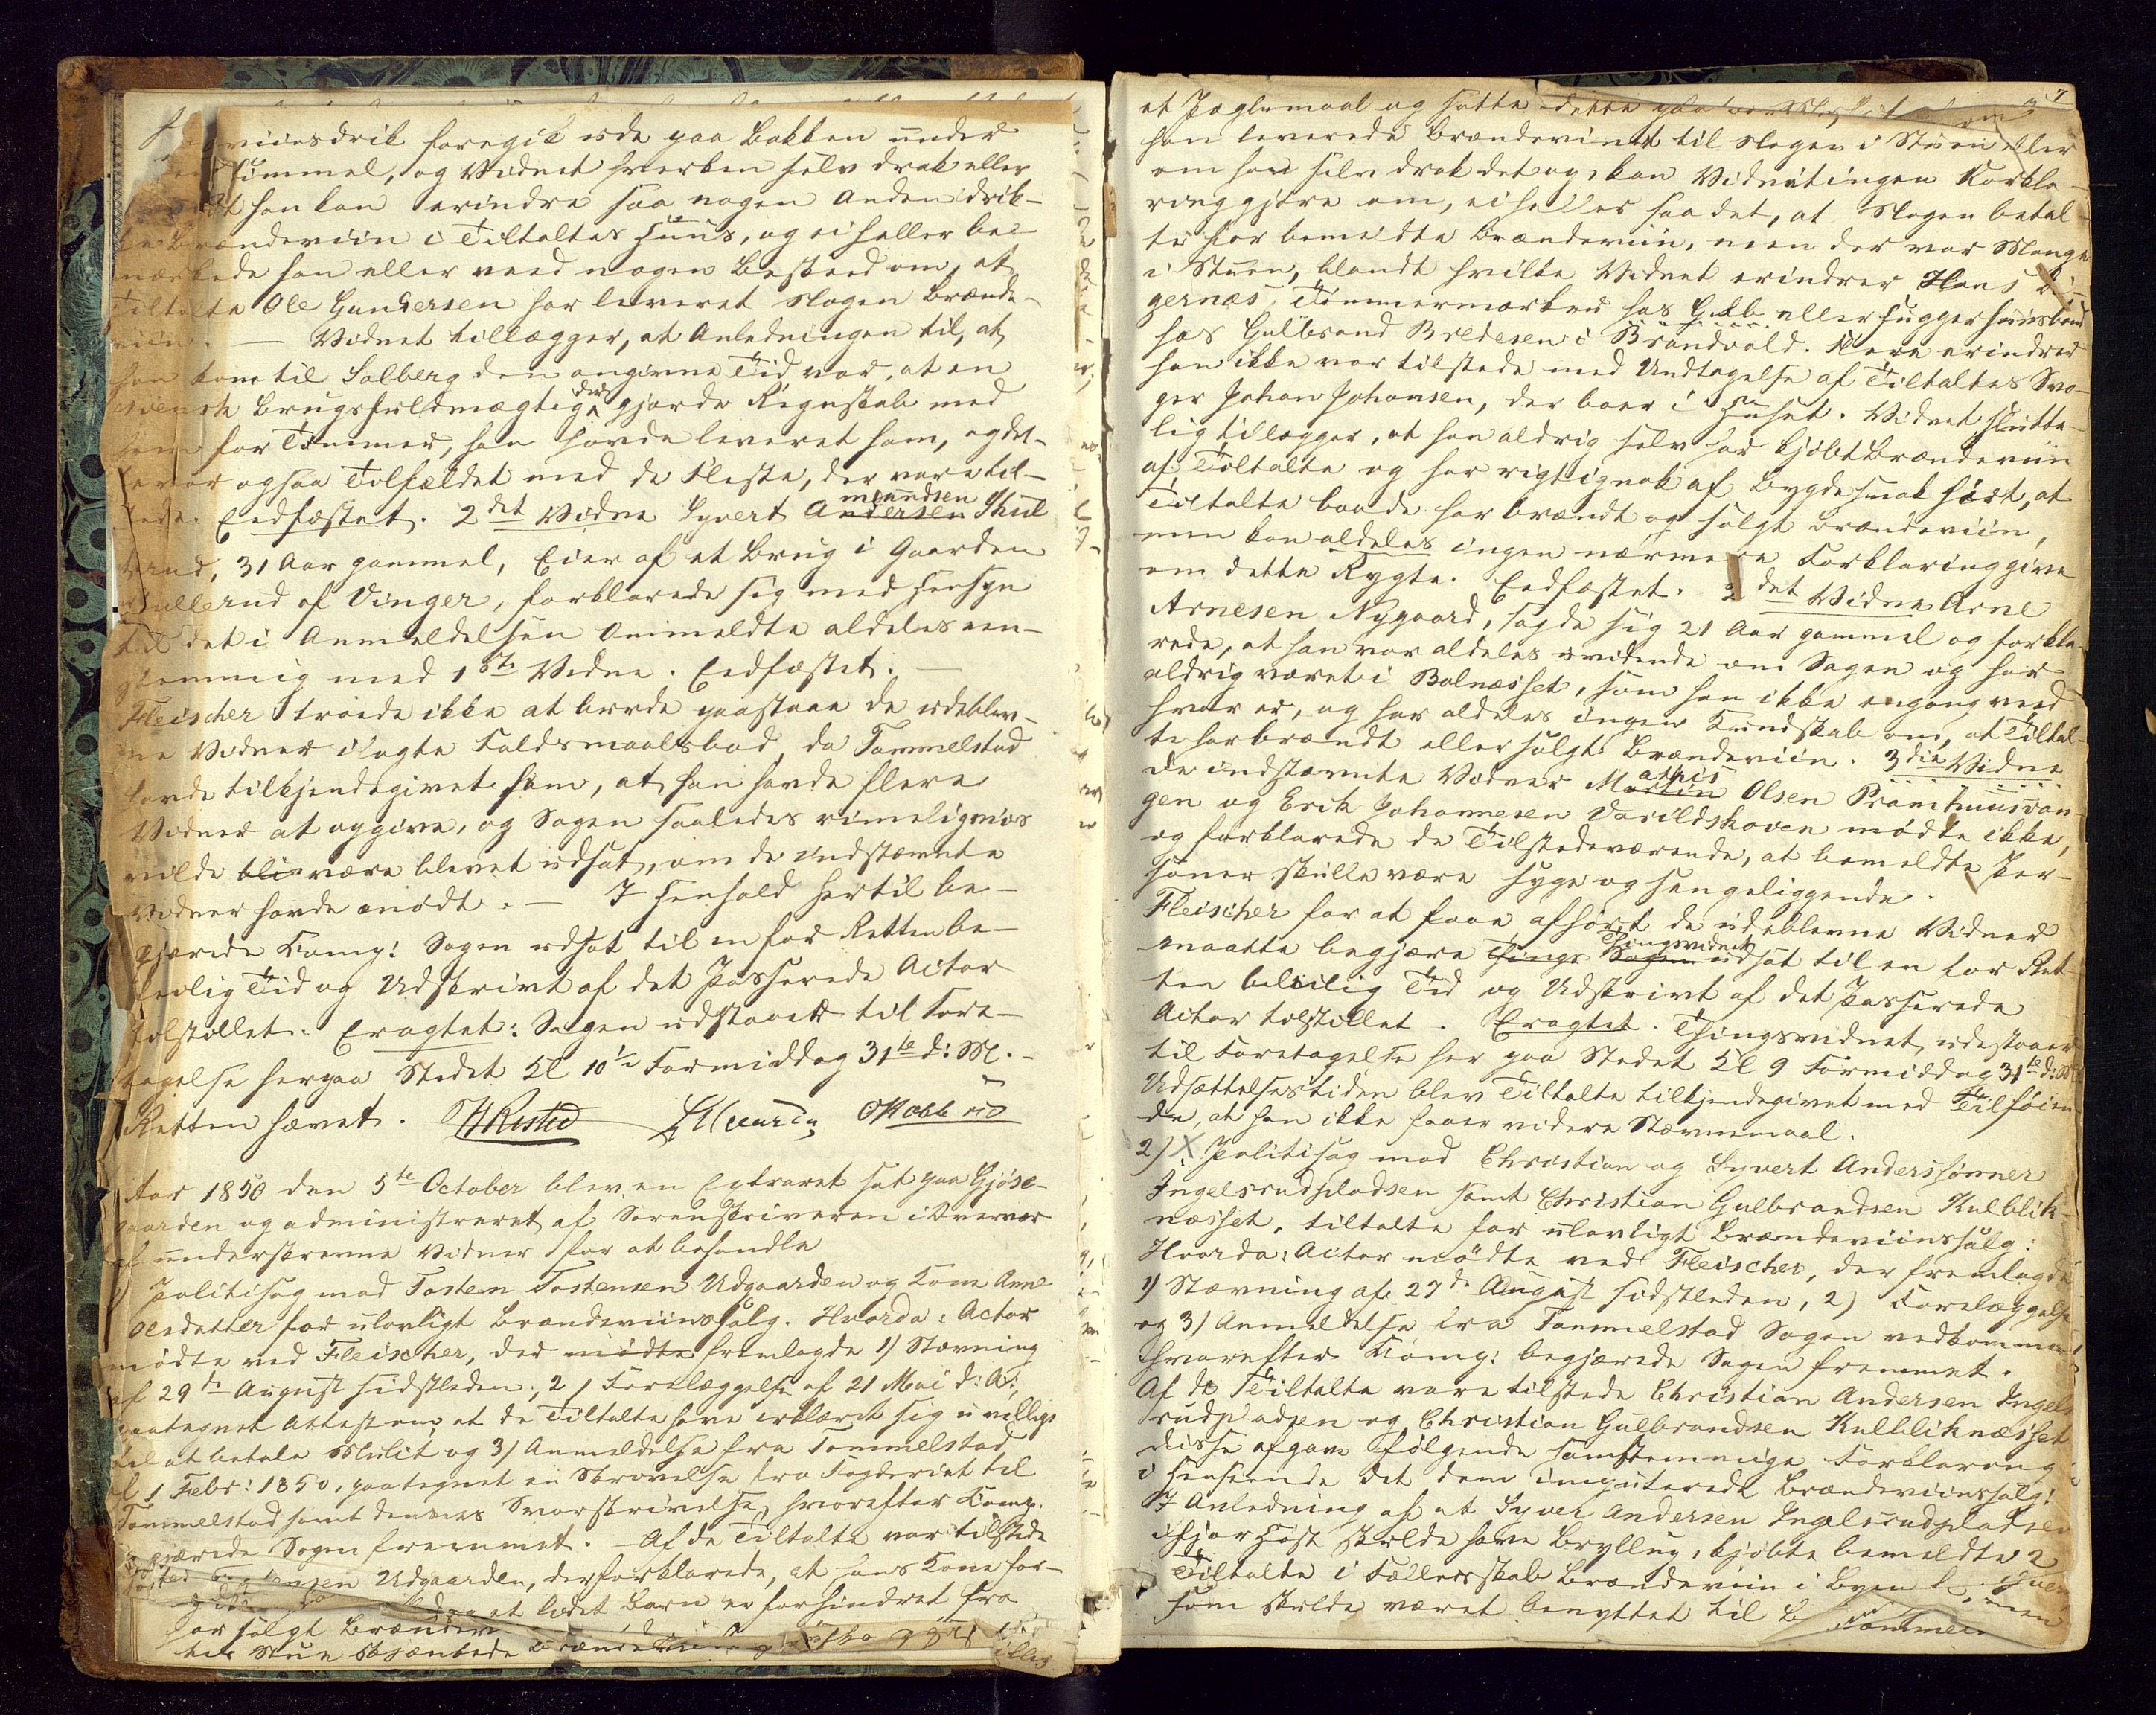 viinsdrik foregik ude paa Bakken under
Himmel, og Vidnet hverken selv drak eller
at han kan erindre saa nogen Anden drik-
ke Brændeviin i Tiltaltes Huus, og ei heller be-
mærkede han eller veed nogen Besked om, at
Tiltalte Ole Gundersen har leveret Nogen Brænde-
viin. — Vidnet tillægger, at Anledningen til, at
han kom til Solberg den angivne Tid var, at en
svensk Brugsfuldmægtig der gjorde Regnskab med
ham for Tømmer, han havde leveret ham, og det-
te var ogsaa Tilfældet med de Fleste, der vare til-
stede. Eedfæstet. 2det Vidne Syvert Andersen mundsen Skul
rud, 31 Aar gammel, Eier af et Brug i Gaarden
Sullerud af Vinger, forklarede sig med Hensyn
til det i Anmeldelsen Ommeldte aldeles een-
stemmig med 1ste Vidne. Eedfæstet. —
Fleischer troede ikke at burde paastaae de udeblev-
ne Vidner ilagte Faldsmaalsbod, da Tommelstad
havde tilkjendegivet ham, at han havde flere
Vidner at opgive, og Sagen saaledes rimeligviis
vilde bli være blevet udsat, om de indstævnte
Vidner havde mødt. — I Henhold hertil be-
gjærede Comp: Sagen udsat til en for Retten be-
leilig Tid og Udskrivt af det Passerede Actor
tilstillet. Eragtet: Sagen udstaaer til Fore-
tagelse herpaa Stedet Kl 10½ Formiddag 31te d: M. —
Retten hævet.
Aar 1850 den 5te October blev en Extraret sat paa Gjøse-
gaarden og administreret af Sorenskriveren i Overvær
af underskrevne Vidner for at behandle
Politisag mod Tosten Tostensen Udgaarden og Kone Anne
Olsdatter for ulovligt Brændeviinssalg. Hvorda: Actor
mødte ved Fleischer, der mødte fremlagde 1) Stævning
af 29de August sidstleden, 2) Forelæggelse af 21 Mai d: A:,
paategnet Attest om, at de Tiltalte have erklæret sig uvillige
til at betale Mulct og 3) Anmeldelse fra Tommelstad
af 1 Febr: 1850, paategnet en Skrivelse fra Fogderiet til
Tommelstad samt dennes Svarskrivelse, hvorefter Comp.
begjærede Sagen fremmet. — Af de Tiltalte var tilstede
Tosten Tostensen Udgaarden, der forklarede, at hans Kone for-
et lidet Barn er forhindret fra
har solgt Brændev
hele Stue skjænkede Brændeviin
7
et Pæglemaal og satte dette
han leverede Brændeviinet til Nogen i Stuen eller
om han selv drak det op, kan Vidnet ingen Forkla-
ring gjøre om, ei heller saa det, at Nogen betal-
te for bemeldte Brændeviin, men der var Mange
i Stuen, blandt hvilke Vidnet erindrer Hans
gernæs, Tømmermærker hos Gulb eller hugger huusbond
hos Gulbrand Bredesen i Brandvold. Flere erindrer
han ikke var tilstede med Undtagelse af Tiltaltes Sva-
ger Johan Johansen, der boer i Huset. Vidnet slutte-
lig tillægger, at han aldrig selv har kjøbt Brændeviin
af Tiltalte og har rigtignok af Bygdesnak hørt, at
Tiltalte baade har brændt og solgt Brændeviin,
men kan aldeles ingen nærmere Forklaring give
om dette Rygte. Eedfæstet. 2det Vidne Arne
Arnesen Nygaard, sagde sig 21 Aar gammel og forkla-
rede, at han var aldeles uvidende om Sagen og har
aldrig været i Bolnæsset, som han ikke engang veed
hvor er, og har aldeles ingen Kundskab om, at Tiltal-
te har brændt eller solgt Brændeviin. 3die Vidne
De indstævnte Vidner Martin athis Olsen Pramhuusvan-
gen og Erik Johannesen Varildskoven mødte ikke,
og forklarede de Tilstedeværende, at bemeldte Per-
soner skulle være syge og sengeliggende.
Fleischer for at faae afhørt de udeblevne Vidner
maatte begjære Tings Sagen Thingsvidnet udsat til en for Ret-
ten beleilig Tid og Udskrivt af det Passerede
Actor tilstillet. Eragtet. Thingsvidnet udstaaer
til Foretagelse her paa Stedet Kl 9 Formiddag 31te d: M.
Udsættelsestiden blev Tiltalte tilkjendegivet med Tilføien
de, at han ikke faaer videre Stævnemaal.
2) X Politisag mod Christian og Syvert Anderssønner
Ingelsrudpladsen samt Christian Gulbrandsen Kulblik-
næsset, tiltalte for ulovligt Brændeviinssalg:
Hvorda: Actor mødte ved Fleischer, der fremlagde
1) Stævning af 27de August sidstleden, 2) Forelæggelse
og 3) Anmeldelse fra Tommelstad Sagen vedkommen
hvorefter Comp: begjærede Sagen fremmet.
Af de Tiltalte vare tilstede Christian Andersen Ingels
rudpladsen og Christian Gulbrandsen Kulbliknæsset
disse afgave følgende samstemmige Forklaring
i Henseende det dem imputerede Brændeviinssalg:
I Anledning af at Syver Andersen Ingelsrudpladsen
ifjor Høst skulde have Bryllup, kjøbte bemeldte 2
Tiltalte i Fællesskab Brændeviin i Byen
som skulde været benyttet til B